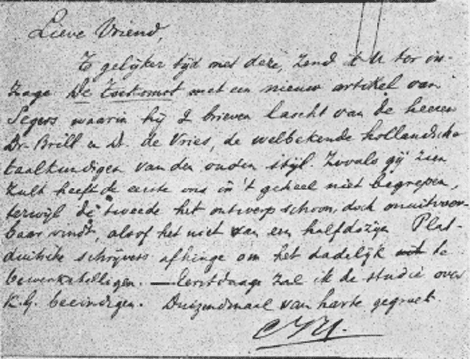 Lieve Vriend,
Te gelijker tijd met deze, zend ik U ter in-
zage De toekomst met een nieuw artikel van
Segers waarin hij 2 brieven lascht van de heeren
Dr Brill en Dr. de Vries, de welbekende hollandsche
taalkundigen van den ouden stijl. Zooals gij zien
zult heeft de eerste ons in 't geheel niet begrepen,
terwijl de tweede het ontwerp schoon, doch onuitvoer-
baar vindt, alsof het niet van een halfdozijn Plat-
duitsche schrijvers afhinge om het dadelijk te
bewerkstelligen. — Eerstdaags zal ik de studie over
K.G. beeindigen. Duizendmaal van harte gegroet.